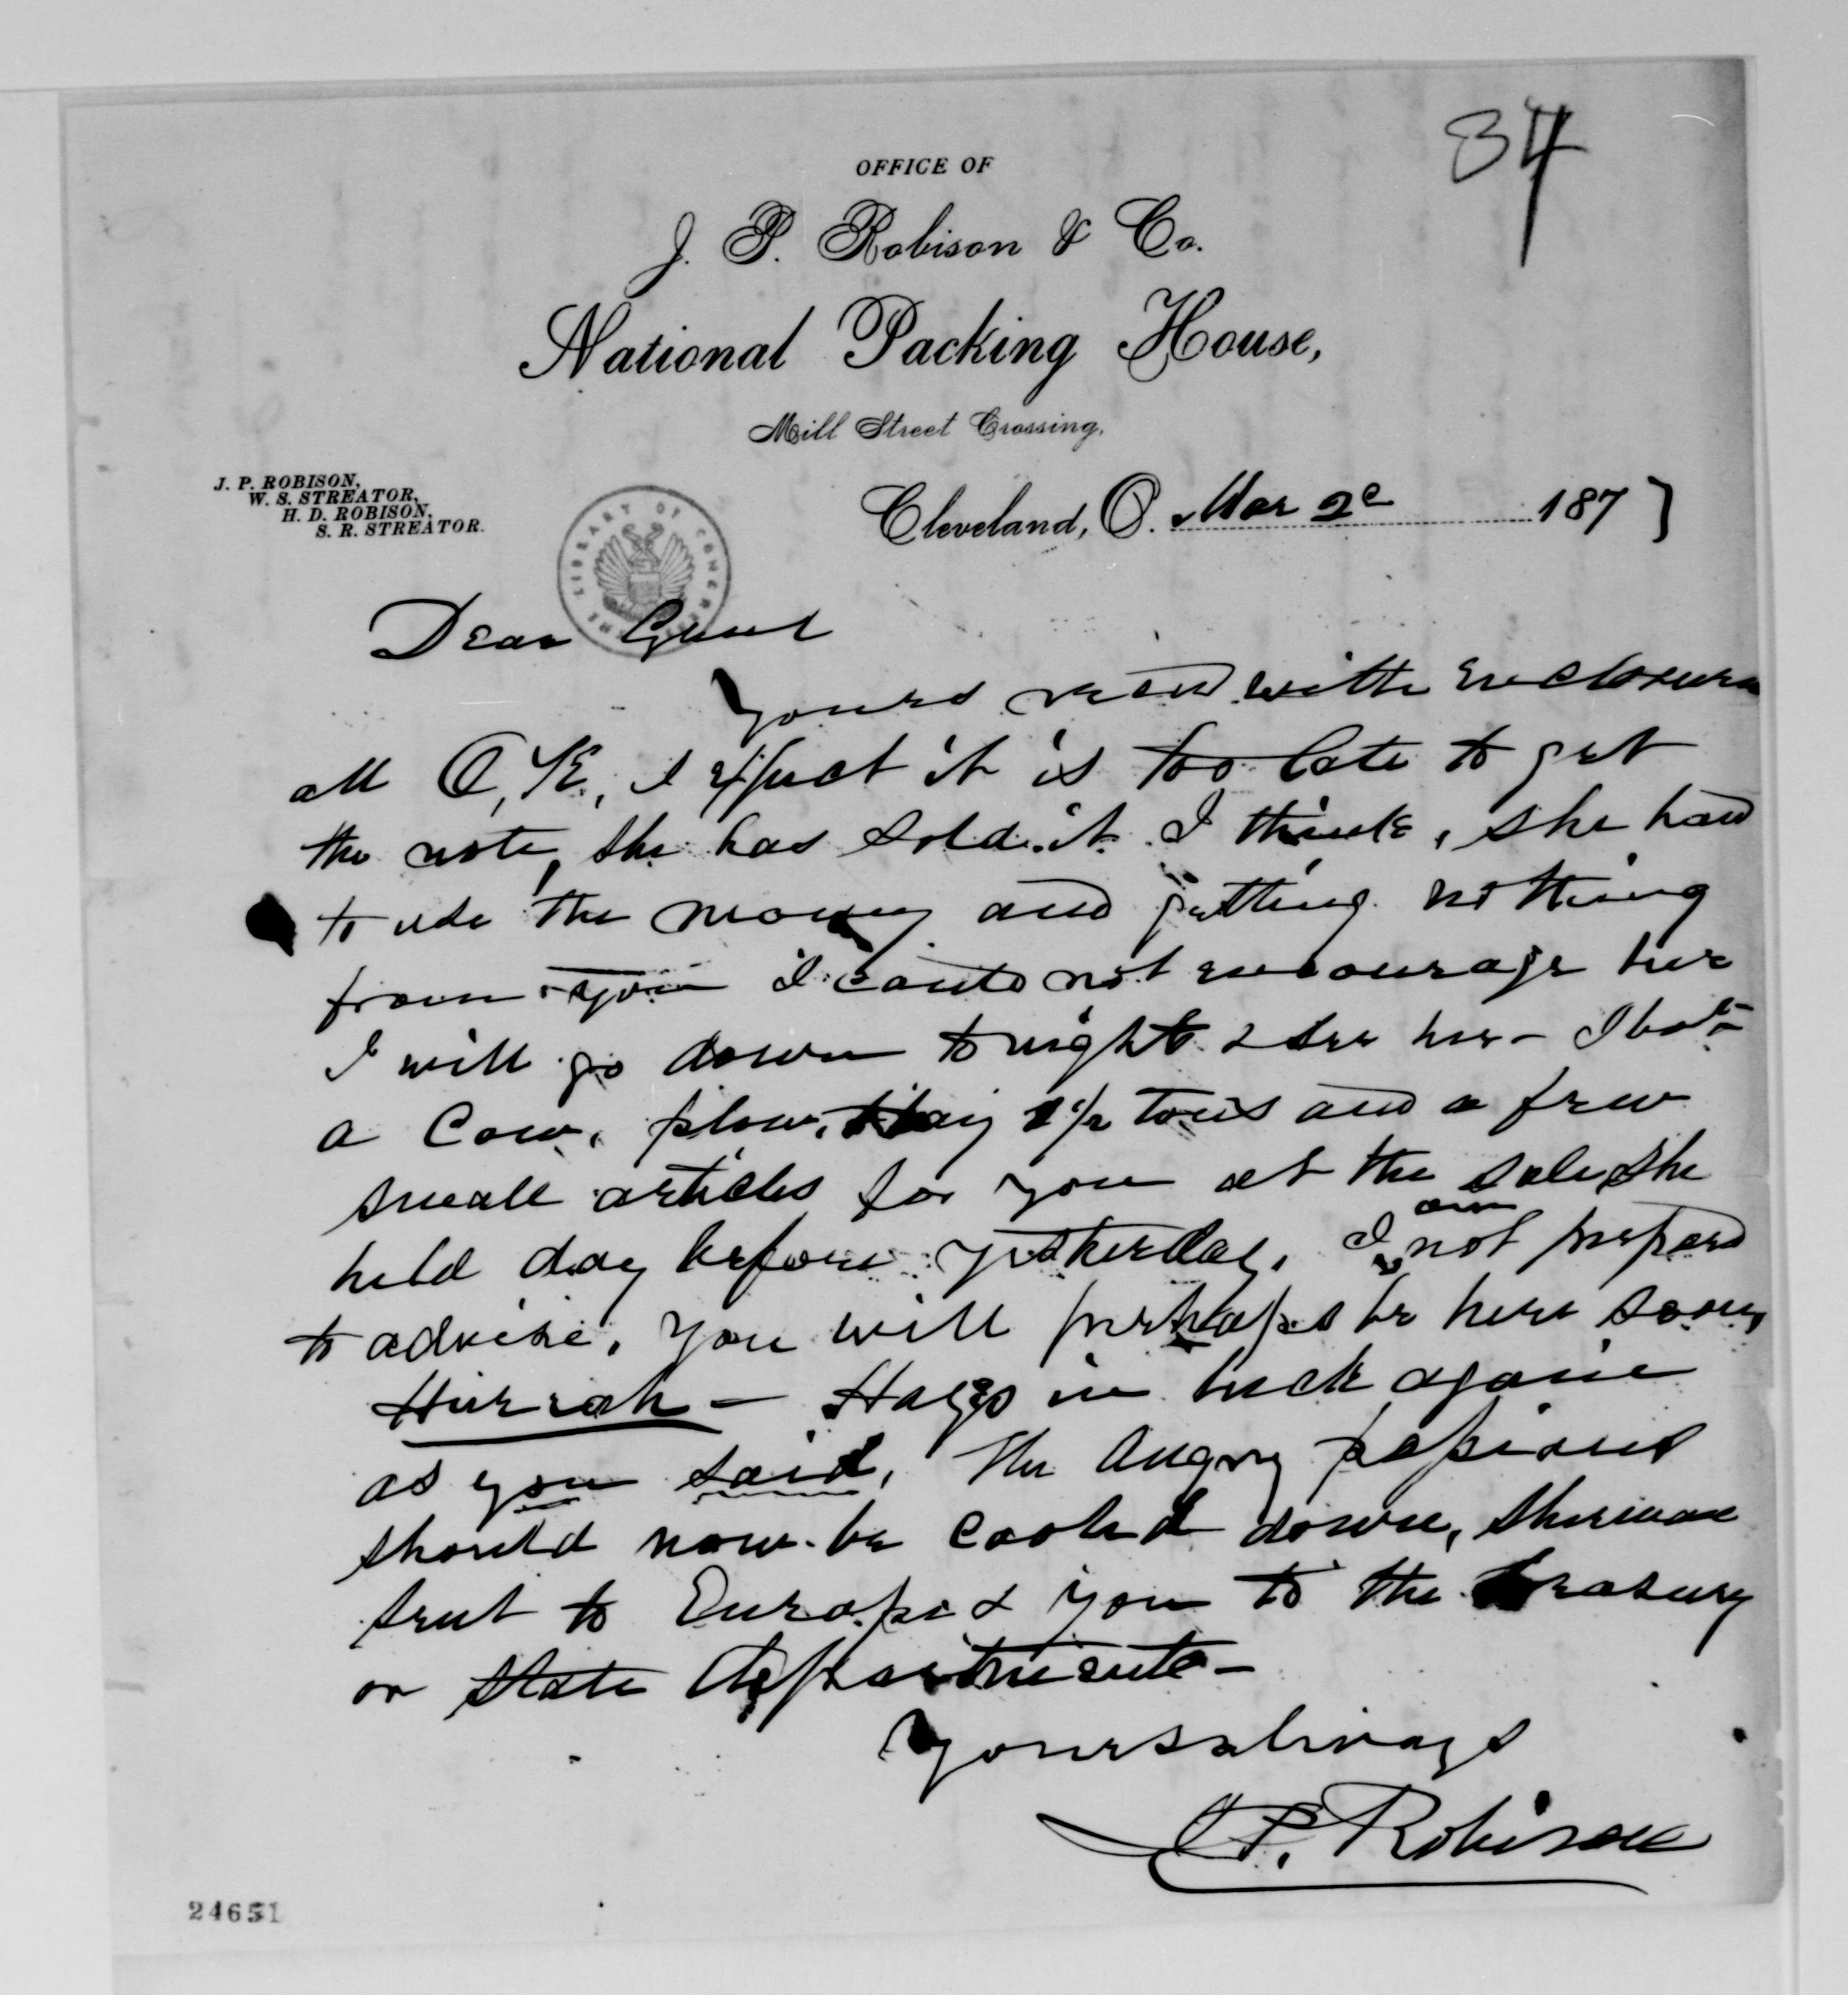 84
OFFICE OF
J. P. Robison & Co.
National Packing House,
Mill Street Crossing,
J. P. ROBISON,
W. S. STREATOR,
H. D. ROBISON,
S. R. STREATOR.
Cleveland, O. Mar 2d 1877
THE LIBRARY OF CONGRESS
Dear Genl
Yours recd with enclosure
all O, K, I expect it is too late to get
the note, she has sold it I think, she had
to use the money and getting nothing
from you I could not encourage her
I will go down tonight & see her - I bot
a Cow, plow, Hay 2 1/2 tons and a few
small articles for you at the sale she
held day before yesterday, I am not prepard
to advise, you will perhaps be here soon,
Hurrah - Hayes in luck again
as you said, The angry passions
should now be cooled down, Sherman
sent to Europe & you to the treasury
or State departments -
Yours always
J P. Robison
24651